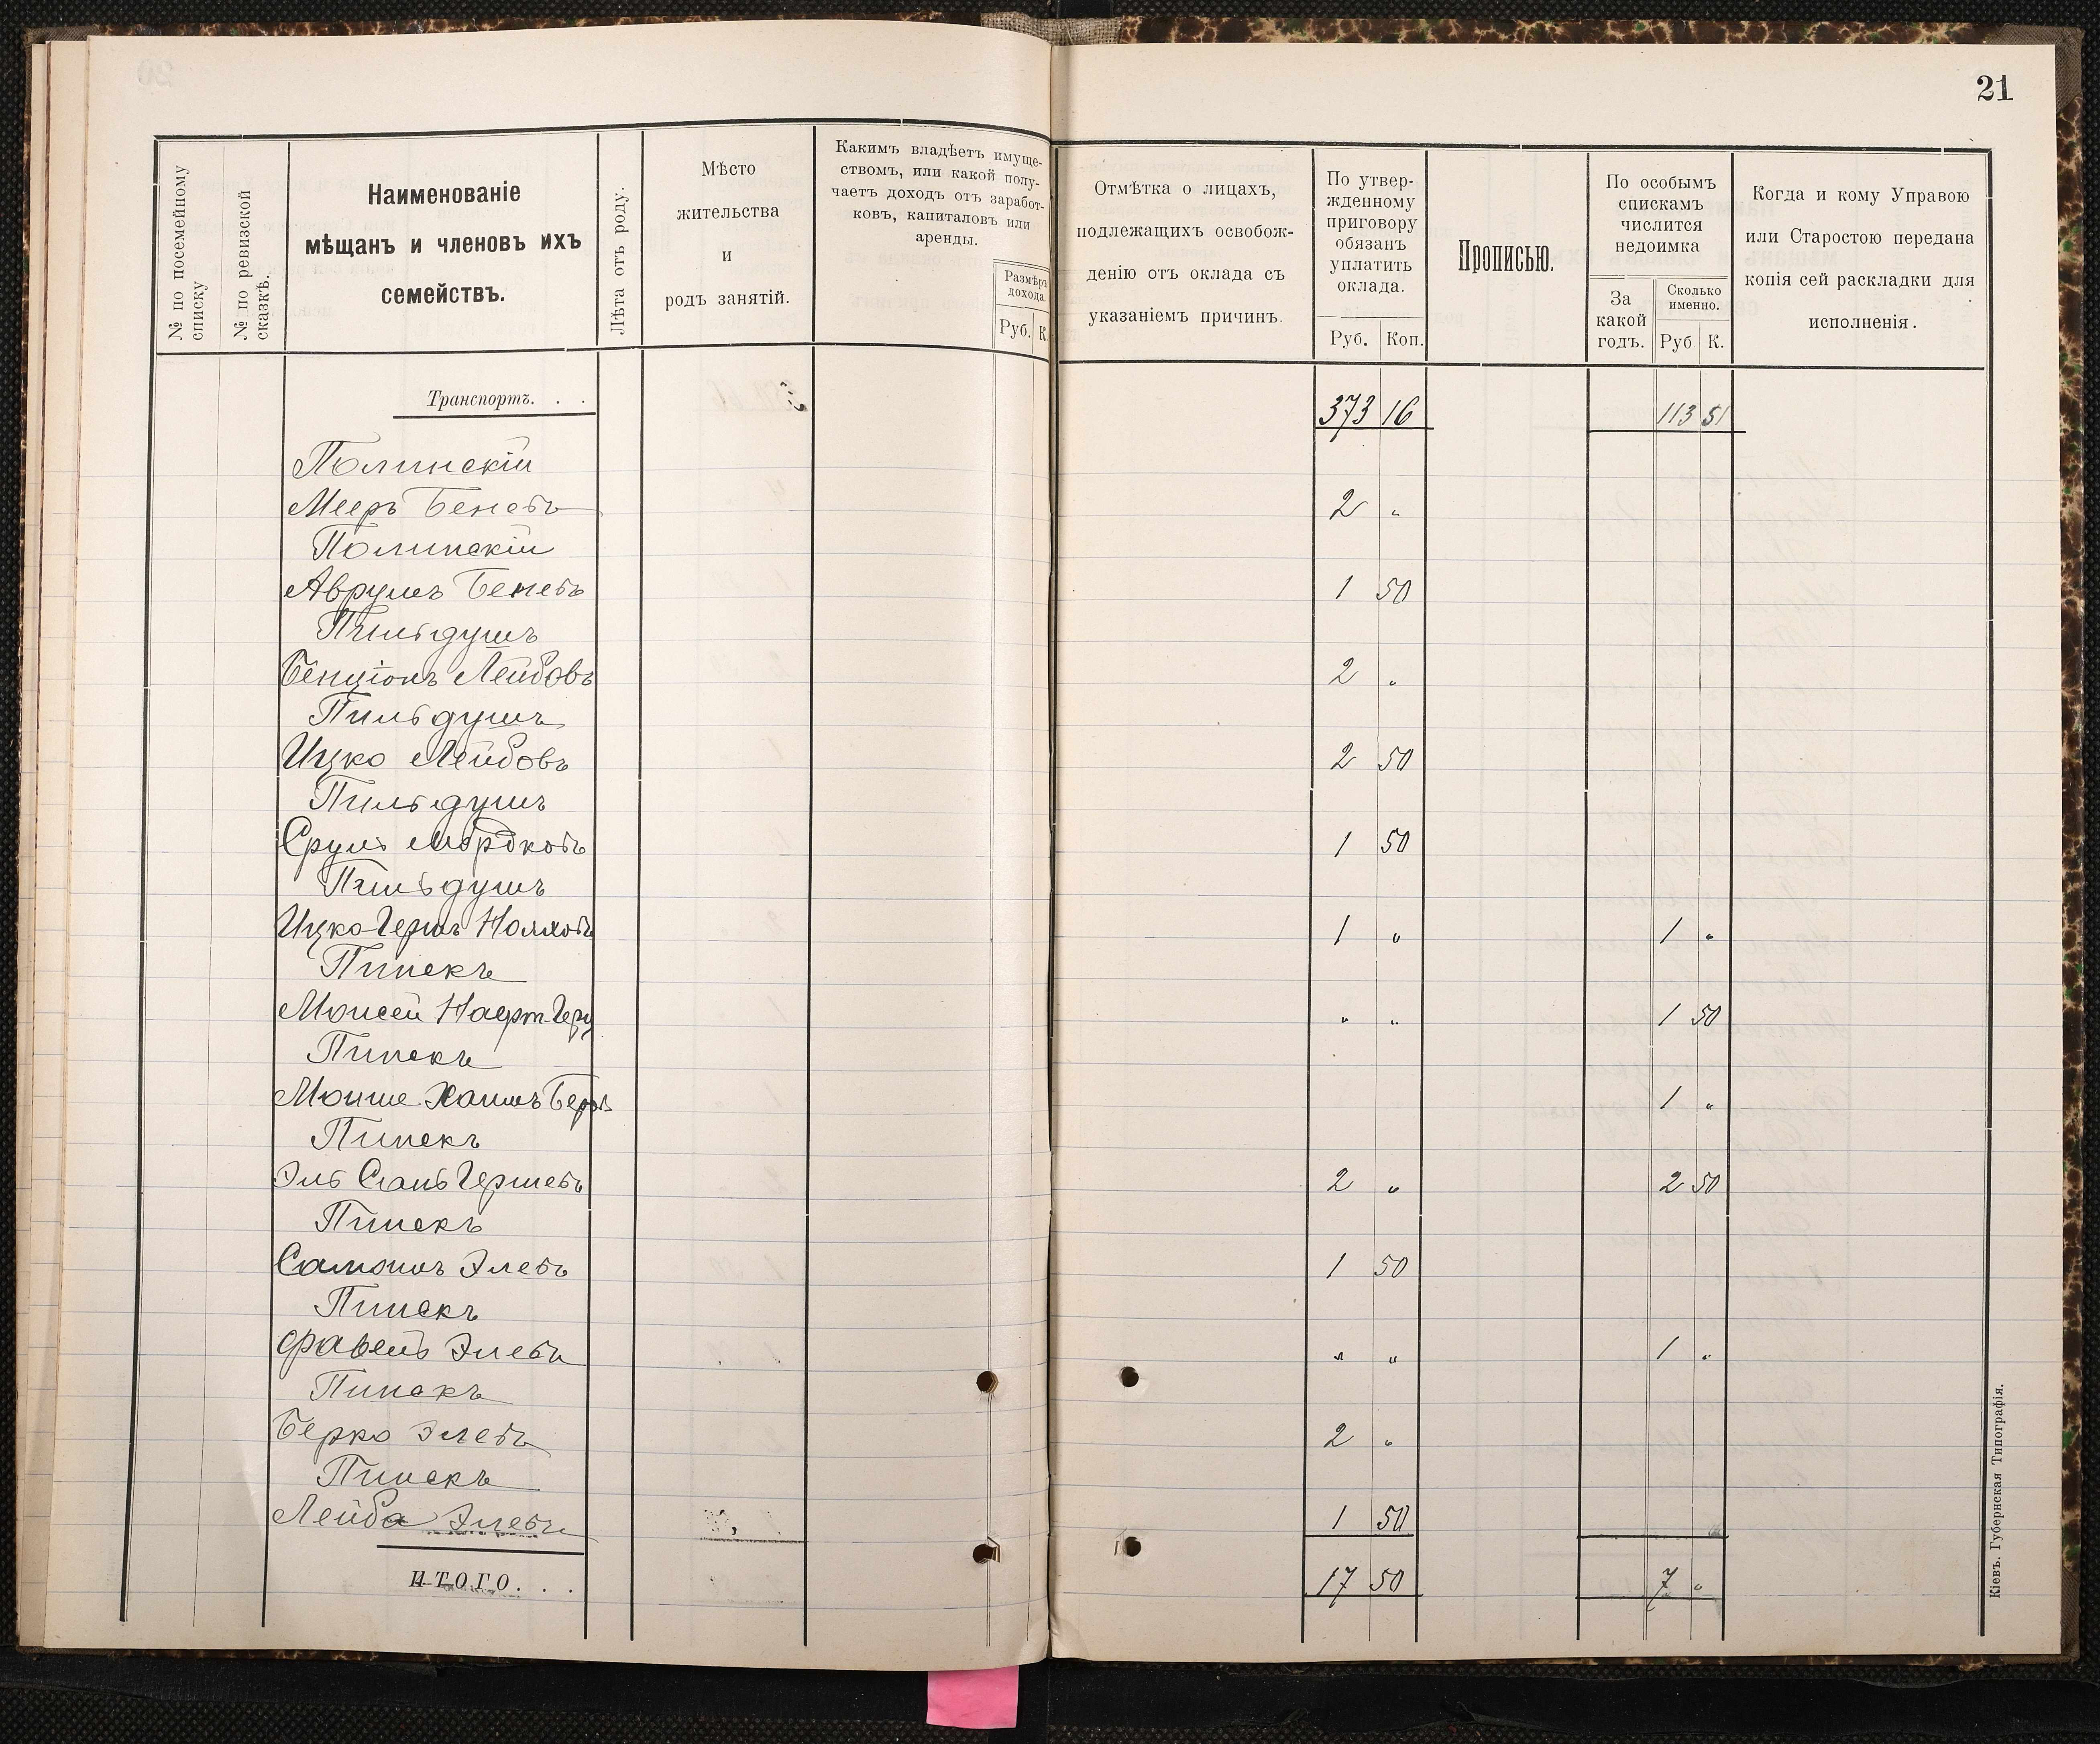 21
№ по посемейному
списку
№ по ревизской
сказкѣ.
Наименованіе
мѣщанъ и членовъ ихъ
семействъ.
Лѣта отъ роду.
Мѣсто
жительства
и
родъ занятій.
Какимъ владѣетъ имуще-
ствомъ, или какой полу-
чаетъ доходъ отъ заработ-
ковъ, капиталовъ или
аренды.
Размѣръ
дохода.
Руб. К.
Отмѣтка о лицахъ,
подлежащихъ освобож-
денію отъ оклада съ
указаніемъ причинъ.
По утвер-
жденному
приговору
обязанъ
уплатить
оклада.
Руб. Коп.
Прописью.
По особымъ
спискамъ
числится
недоимка
За
какой
годъ.
Сколько
именно.
Руб К.
Когда и кому Управою
или Старостою передана
копія сей раскладки для
исполненія.
Транспортъ. . . 373 16 113 51
Полинскій
Мееръ Беневъ 2 "
Полинскій
Аврумъ Беневъ 1 50
Пильдушъ
Бенціонъ Лейбовъ 2 "
Пильдушъ
Ицко Лейбовъ 2 50
Пильдушъ
Сруль Мордковъ 1 50
Пильдушъ
Ицко-Гершъ 1 " 1 "
Пинскъ
Моисей " " 1 50
Пинскъ
Мойше Хаимъ 1 "
Пинскъ
Эль Гершевъ 2 " 2 50
Пинскъ
Элевъ 1 50
Пинскъ
Файвель Элевъ " " 1 "
Пинскъ
Берко Элевъ 2 "
Пинскъ
Лейба Элевъ 1 50
ИТОГО. . . 17 50 7 "
Кіевъ. Губернская Типографія.